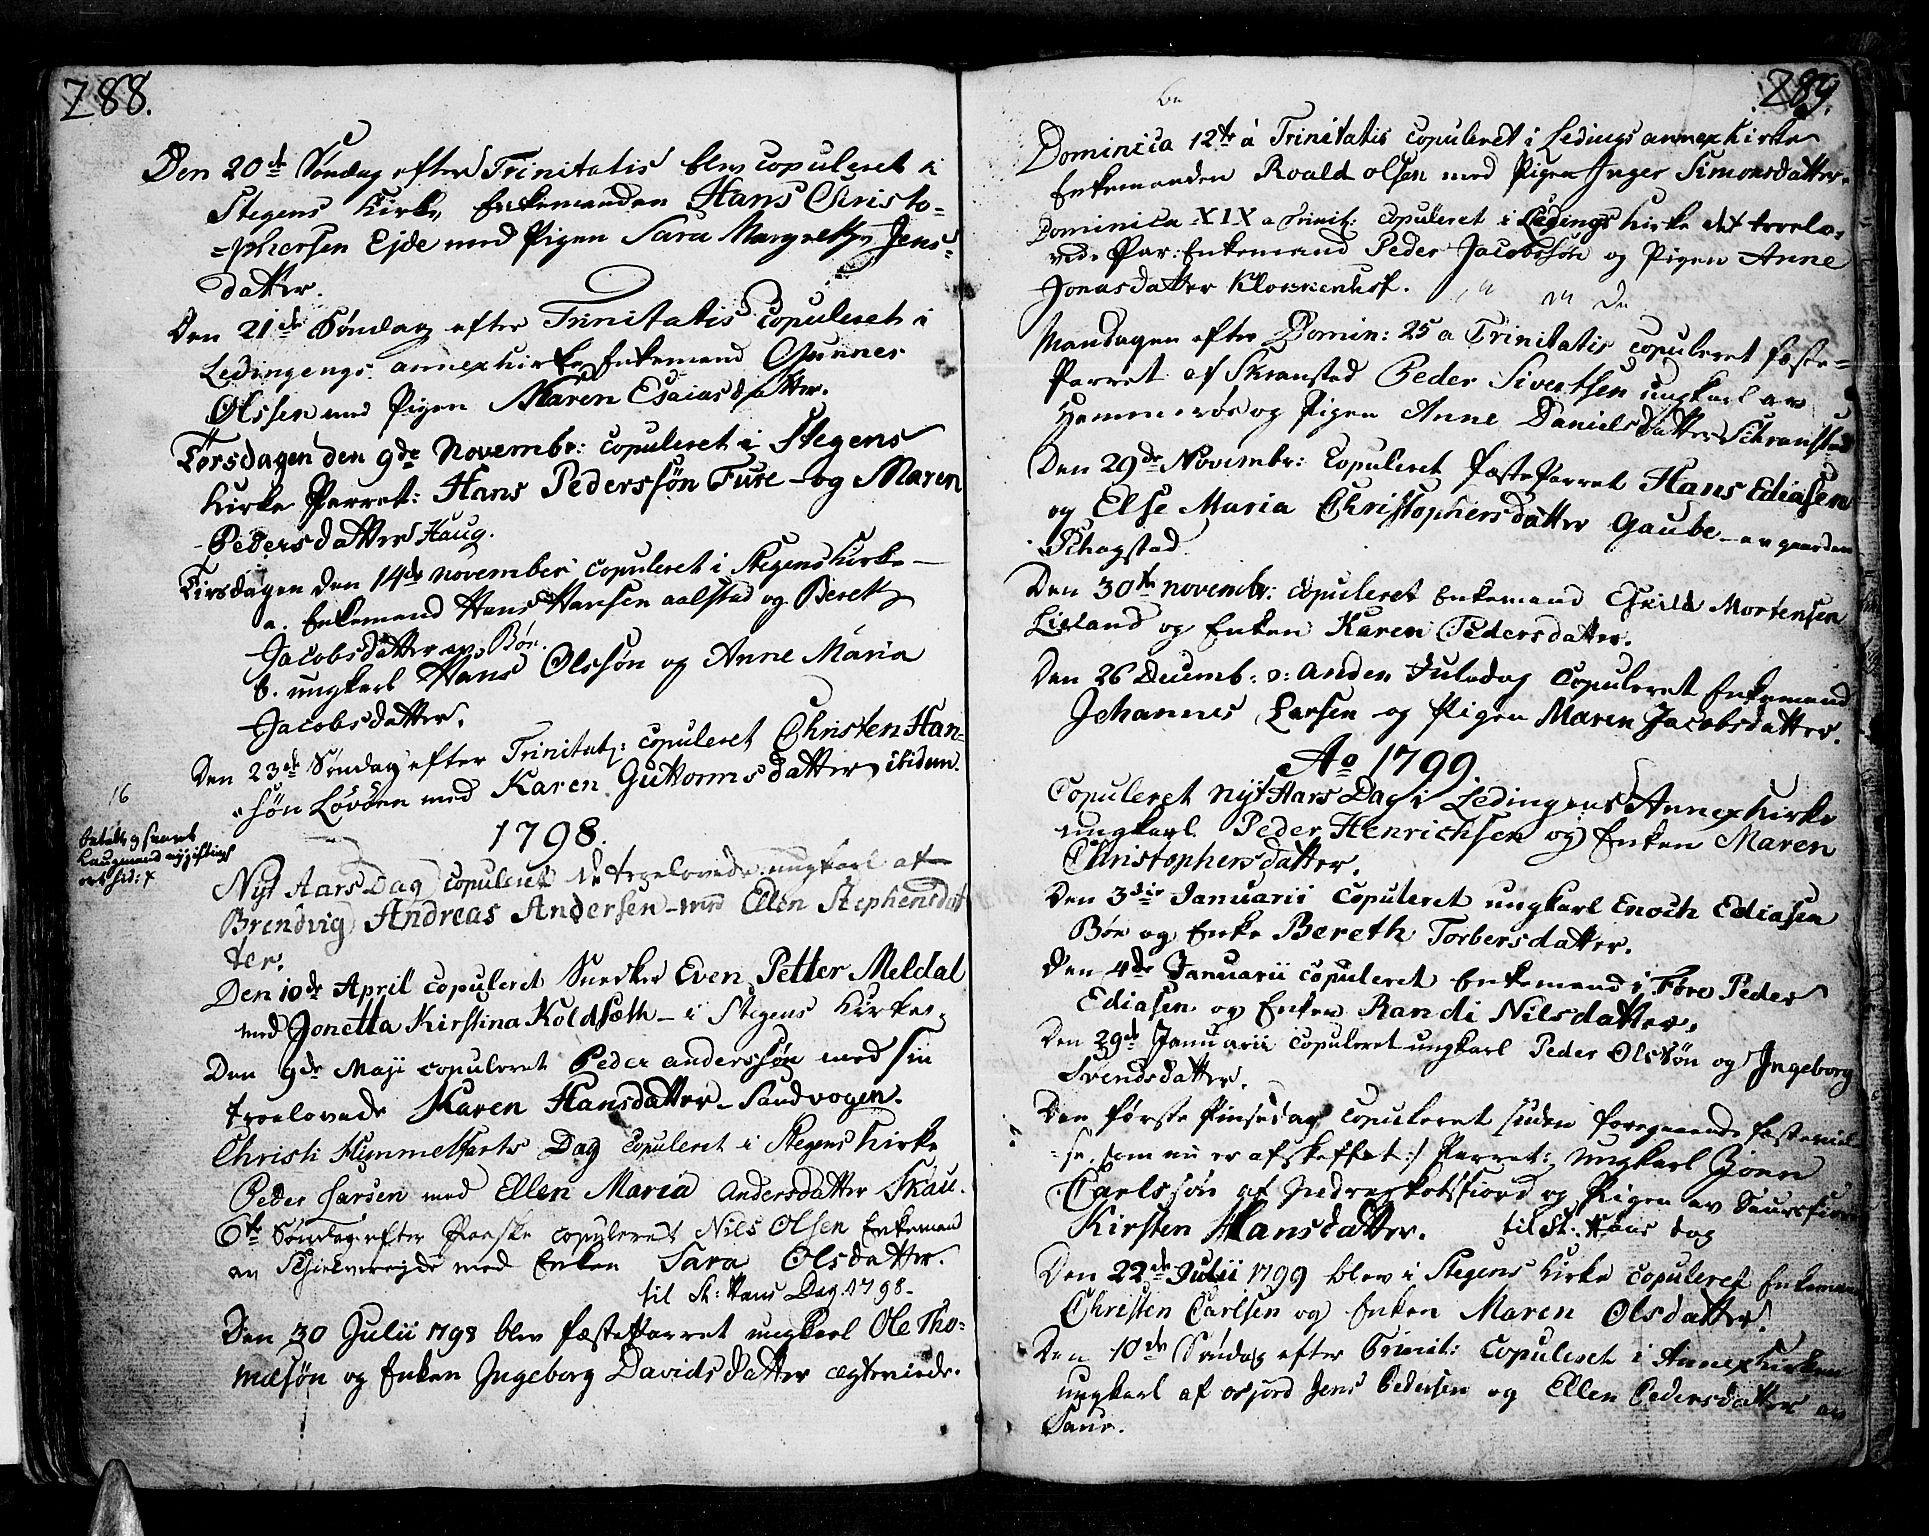 288.
Den 20de Søndag efter Trinitatis blev copuleret i
Stegens Kirke Enkemanden Hans Christo-
=phersen Ejde med Pigen Sara Margrethe Jens-
datter.
Den 21de Søndag efter Trinitatis Copuleret i
Ledingengs annexkirke Enkemand Gunner
Olssen med Pigen Maren Esaiasdatter.
Torsdagen den 9de Novembr: copuleret i Stegens
Kirke Parret: Hans Pederssøn Fure og Maren
Pedersdatter Haug.
Tirsdagen den 14de november copuleret i Stegens Kirke
a. Enkemand Hans Hansen aalstad og Bereth
Jacobsdatter av Bøe.
b. ungkarl Hans Olssøn og Anne Maria
Jacobsdatter.
Den 23de Søndag efter Trinitat: copuleret Christen Han-
søn Løvøen med Karen Guttormsdatter ibidem.
16
1798.
Nyt Aars Dag copuleret de troelovede ungkarl af
Brendvig Andreas Andersen med Ellen Stephensdat
ter.
Den 10de April copuleret Snedker Even Petter Meldal
med Jonetta Kirstina Koldsæth i Stegens Kirke.
Den 9de Maji copuleret Peder anderssøn med sin
troelovede Karen Hansdatter Sandvogen.
Christi Himmelfarts Dag copuleret i Stegens Kirke
Peder Larsen med Ellen Maria Andersdatter Skau.
6te Søndag efter Paaske copuleret Nils Olsen Enkemand
av med Enken Sara Olsdatter.
til St: Hans Dag 1798.
Den 30 Julii 1798 blev fæsteParret ungkarl Ole Tho-
mæsøn og Enken Ingeborg Davidsdatter ægteviede.
289.
Dominica 12te à Trinitatis copuleret i Ledings annexkirke
Enkemanden Roald olsen med Pigen Inger Simonsdatter.
Dominica XIX a Trinit: copuleret i Ledings Kirke det troelo-
vede Par: Enkemand Peder Jacobssøn og Pigen Anne
Jonasdatter Klokkenhof.
Mandagen efter Domin: 25 a Trinitatis copuleret fæste-
Parret af Skranstad Peder Sivertsen ungkarl av
Hammerøe og Pigen Anne Danielsdatter Schranstad
Den 29de Novembr: Copuleret fæsteParret Hans Ediasen
og Else Maria Christophersdatter Gaube av gaarden
Schagstad.
Den 30te novembr: copuleret Enkemand Eskild Mortensen
Lieland og Enken Karen Pedersdatter.
Den 26 Decemb: anden Juledag Copuleret Enkemand
Johannes Larsen og Pigen Maren Jacobsdatter.
Ao 1799.
Copuleret Nyt Aars Dag i Ledingens Annexkirke
ungkarl Peder Henrichsen og Enken Maren
Christophersdatter.
Den 3die Januarii copuleret ungkarl Enoch Ediasen
Bøe og Enke Bereth Torbersdatter.
Den 4de Januarii copuleret Enkemand i Føre Peder
Ediasen og Enken Randi Nilsdatter.
Den 29de Januarii copuleret ungkarl Peder Olssøn og Ingeborg
Svendsdatter.
Den første Pinsedag copuleret uden foregaaende fæsteviel-
se, som nu er afskaffet :/ Parret: Ungkarl Joen
Carlssøn af Indre kotsfiord og Pigen av Saursfiord
Kirsten Hansdatter. til St: Hans dag
Den 22de Julii 1799 blev i Stegens Kirke copuleret Enkeman
Christen Carlsen og Enken Maren Olsdatter.
Den 10de Søndag efter Trinit: Copuleret i Annexkirken
ungkarl af Jens Pedersen og Ellen Pedersdatter av
Saur.